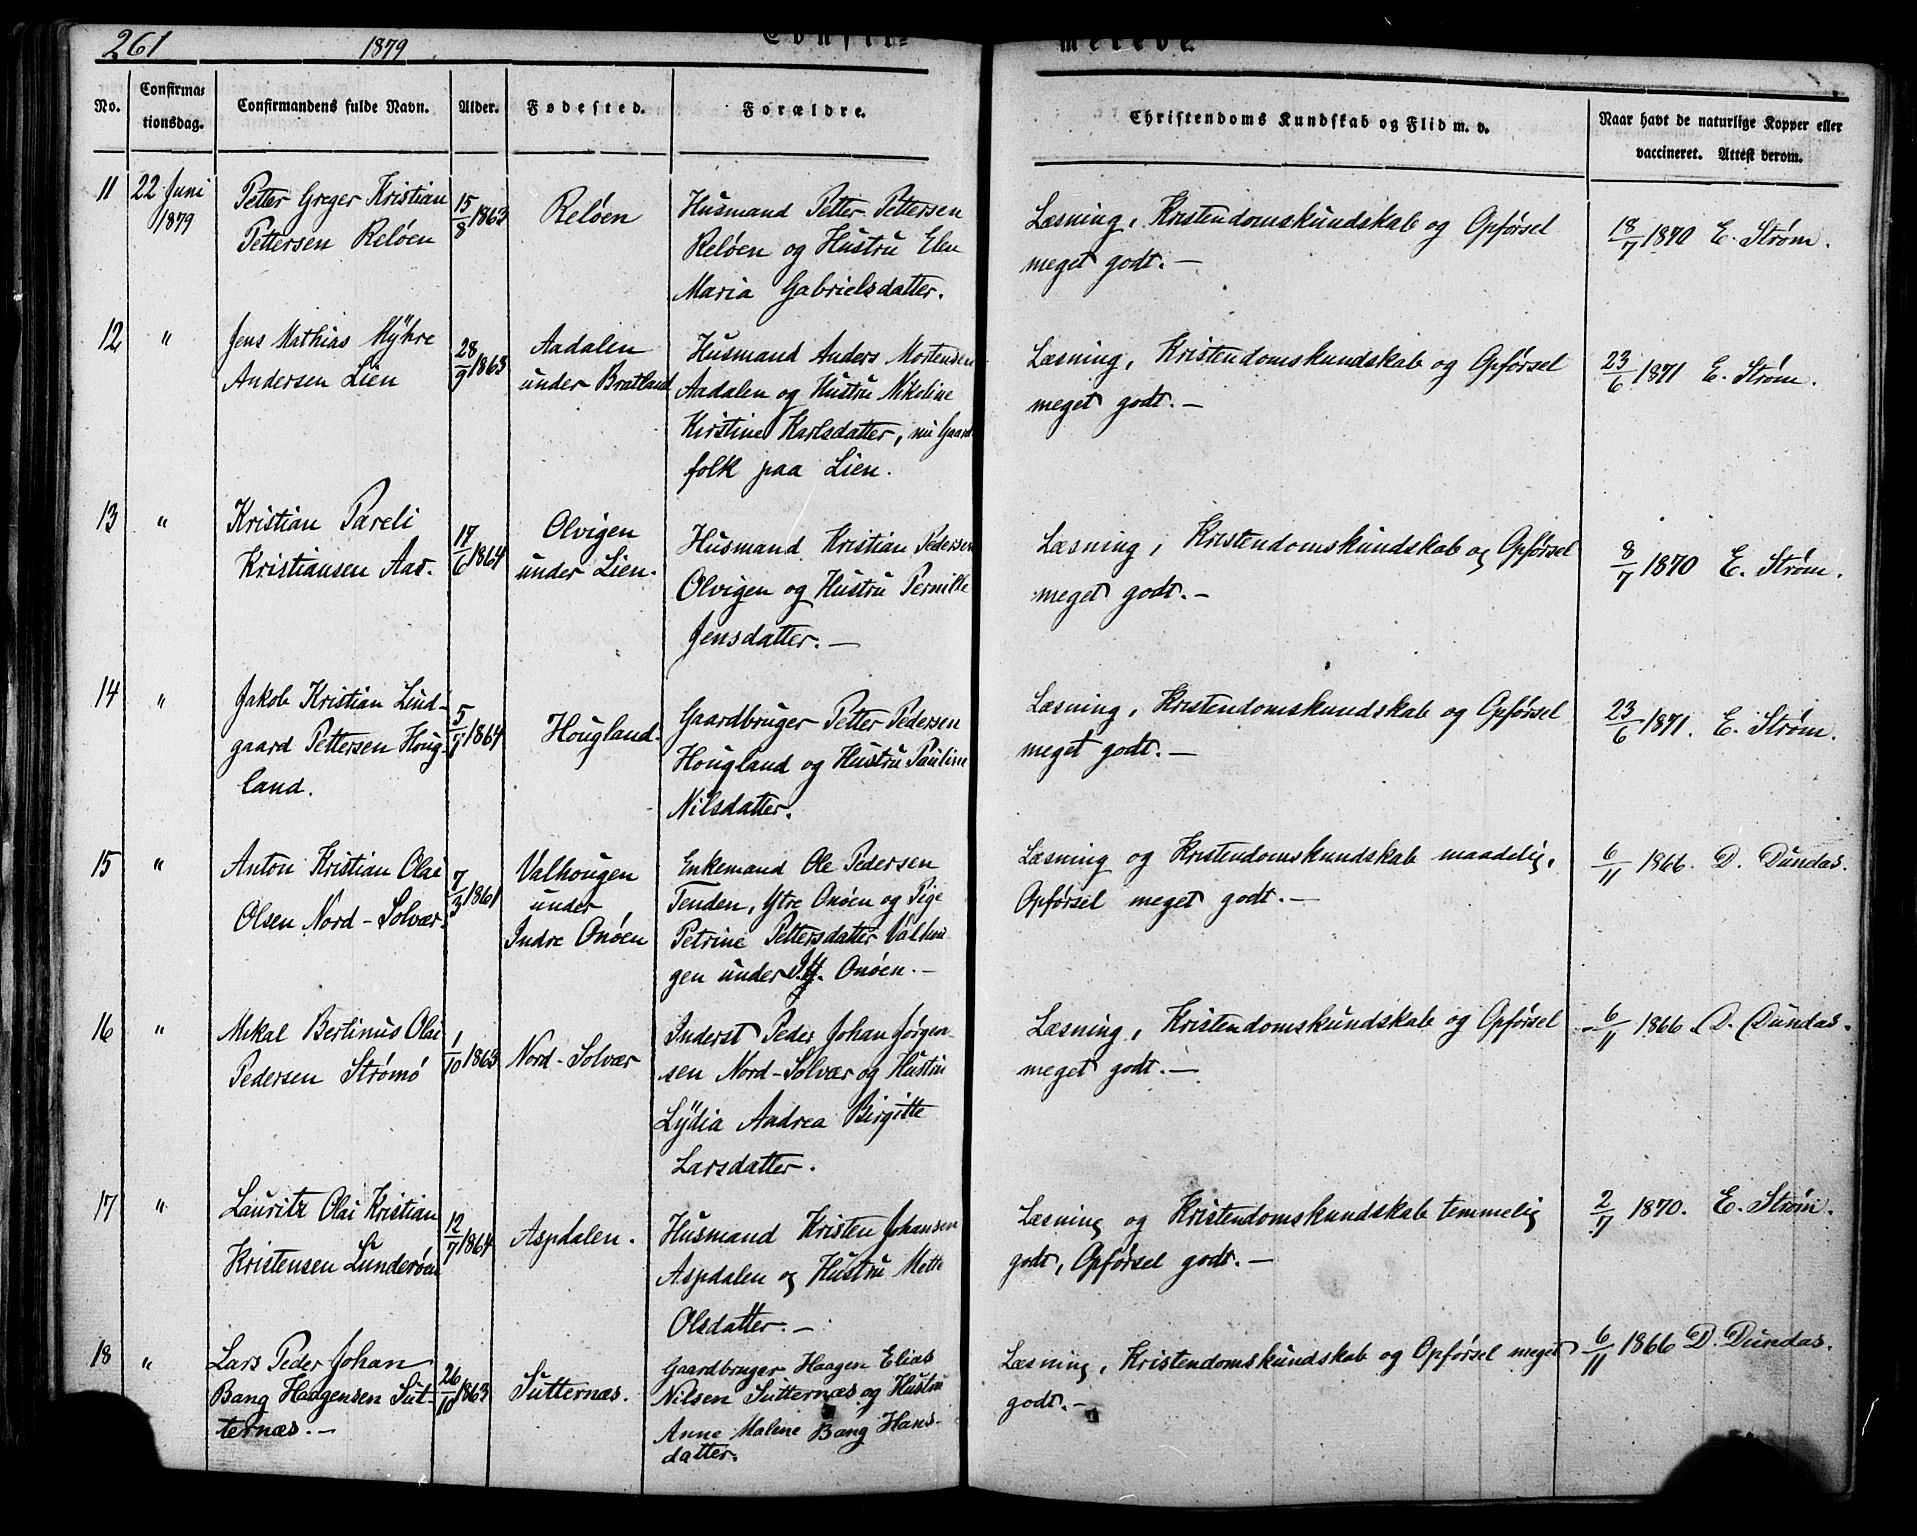 261
1879
Confir=
merede.
No.
Confirma=
tionsdag.
Confirmandens fulde Navn.
Alder.
Fødested.
Forældre.
Christendoms Kundskab og Flid m. v.
Naar havt de naturlige Kopper eller
vaccineret. Attest derom.
11
22 Juni
1879
Petter Greger Kristian
Pettersen Reløen
15/8 1863
Reløen
Husmand Petter Pettersen
Reløen og Hustru Elen
Maria Gabrielsdatter.
Læsning, Kristendomskundskab og Opførsel
meget godt. —
18/7 1870 E. Strøm.
12
"
Jens Mathias Myhre
Andersen Lien
28/9 1863
Aadalen
under Bratland
Husmand Anders Mortensen
Aadalen og Hustru Nikoline
Kirstine Karlsdatter, nu Gaard-
folk paa Lien.
Læsning, Kristendomskundskab og Opførsel
meget godt. —
23/6 1871 E. Strøm.
13
"
Kristian Pareli
Kristiansen Aas.
17/6 1864
Olvigen
under Lien.
Husmand Kristian Pedersen
Olvigen og Hustru Pernille
Jensdatter. —
Læsning, Kristendomskundskab og Opførsel
meget godt. —
8/7 1870 E. Strøm.
14
"
Jakob Kristian Lind-
gaard Pettersen Houg-
land.
5/1 1864
Hougland.
Gaardbruger Petter Pedersen
Hougland og Hustru Pauline
Nilsdatter.
Læsning, Kristendomskundskab og Opførsel
meget godt. —
23/6 1871. E. Strøm.
15
"
Anton Kristian Olai
Olsen Nord-Solvær.
7/3 1861
Valhougen
under
Indre Onøen
Enkemand Ole Pedersen
Tenden, Ytre Onøen og Pige
Petrine Pettersdatter Valhou
gen under Onøen. —
Læsning og Kristendomskundskab maadelig,
Opførsel meget godt. —
6/11 1866. D. Dundas.
16
"
Mikal Bertinus Olai
Pedersen Strømø
1/10 1863
Nord-Solvær
Inderst Peder Johan Jørgen-
sen Nord-Solvær og Hustru
Lydia Andrea Birgitte
Larsdatter.
Læsning, Kristendomskundskab og Opførsel
meget godt. —
6/11 1866 D. Dundas.
17
"
Lauritz Olai Kristian
Kristensen Lunderøen
12/7 1864
Aspdalen.
Husmand Kristen Johansen
Aspdalen og Hustru Mette
Olsdatter. —
Læsning og Kristendomskundskab temmelig
godt, Opførsel godt. —
2/7 1870. E. Strøm.
18
"
Lars Peder Johan
Bang Haagensen Sut-
ternæs. —
26/10 1863
Sutternæs.
Gaardbruger Haagen Elias
Nilsen Sutternæs og Hustru
Anne Malene Bang Hans-
datter.
Læsning, Kristendomskundskab og Opførsel meget
godt. —
6/11 1866 D. Dundas.